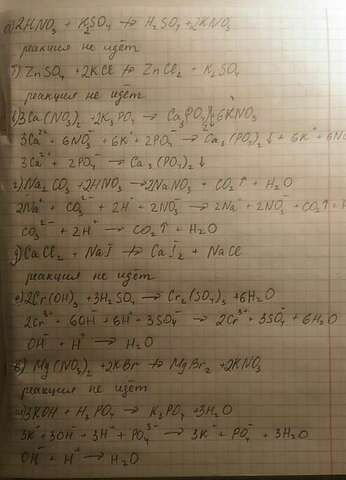 а) 2HNO₃ + K₂SO₄ ↛ H₂SO₄ + 2KNO₃
реакция не идёт
б) ZnSO₄ + 2KCl ↛ ZnCl₂ + K₂SO₄
реакция не идёт
в) 3Ca(NO₃)₂ + 2K₃PO₄ → Ca₃(PO₄)₂↓ + 6KNO₃
3Ca²⁺ + 6NO₃⁻ + 6K⁺ + 2PO₄³⁻ → Ca₃(PO₄)₂↓ + 6K⁺ + 6NO
3Ca²⁺ + 2PO₄³⁻ → Ca₃(PO₄)₂↓
г) Na₂CO₃ + 2HNO₃ → 2NaNO₃ + CO₂↑ + H₂O
2Na⁺ + CO₃²⁻ + 2H⁺ + 2NO₃⁻ → 2Na⁺ + 2NO₃⁻ + CO₂↑ + H
CO₃²⁻ + 2H⁺ → CO₂↑ + H₂O
д) CaCl₂ + NaI ↛ CaI₂ + NaCl
реакция не идёт
е) 2Cr(OH)₃ + 3H₂SO₄ → Cr₂(SO₄)₃ + 6H₂O
2Cr³⁺ + 6OH⁻ + 6H⁺ + 3SO₄²⁻ → 2Cr³⁺ + 3SO₄²⁻ + 6H₂O
OH⁻ + H⁺ → H₂O
ж) Mg(NO₃)₂ + 2KBr ↛ MgBr₂ + 2KNO₃
реакция не идёт
з) 3KOH + H₃PO₄ → K₃PO₄ + 3H₂O
3K⁺ + 3OH⁻ + 3H⁺ + PO₄³⁻ → 3K⁺ + PO₄³⁻ + 3H₂O
OH⁻ + H⁺ → H₂O